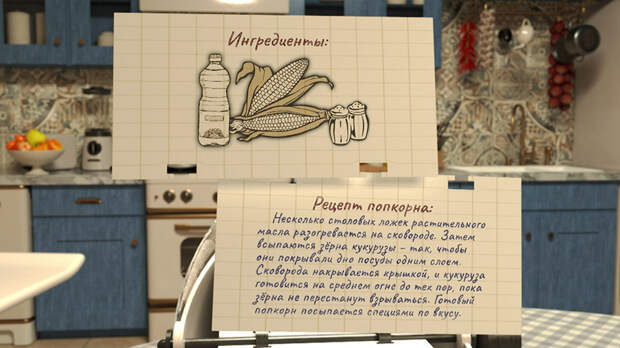 Ингредиенты:
Рецепт попкорна:
Несколько столовых ложек растительного
масла разогревается на сковороде. Затем
всыпаются зёрна кукурузы – так, чтобы
они покрывали дно посуды одним слоем.
Сковорода накрывается крышкой, и кукуруза
готовится на среднем огне до тех пор, пока
зёрна не перестанут взрываться. Готовый
попкорн посыпается специями по вкусу.